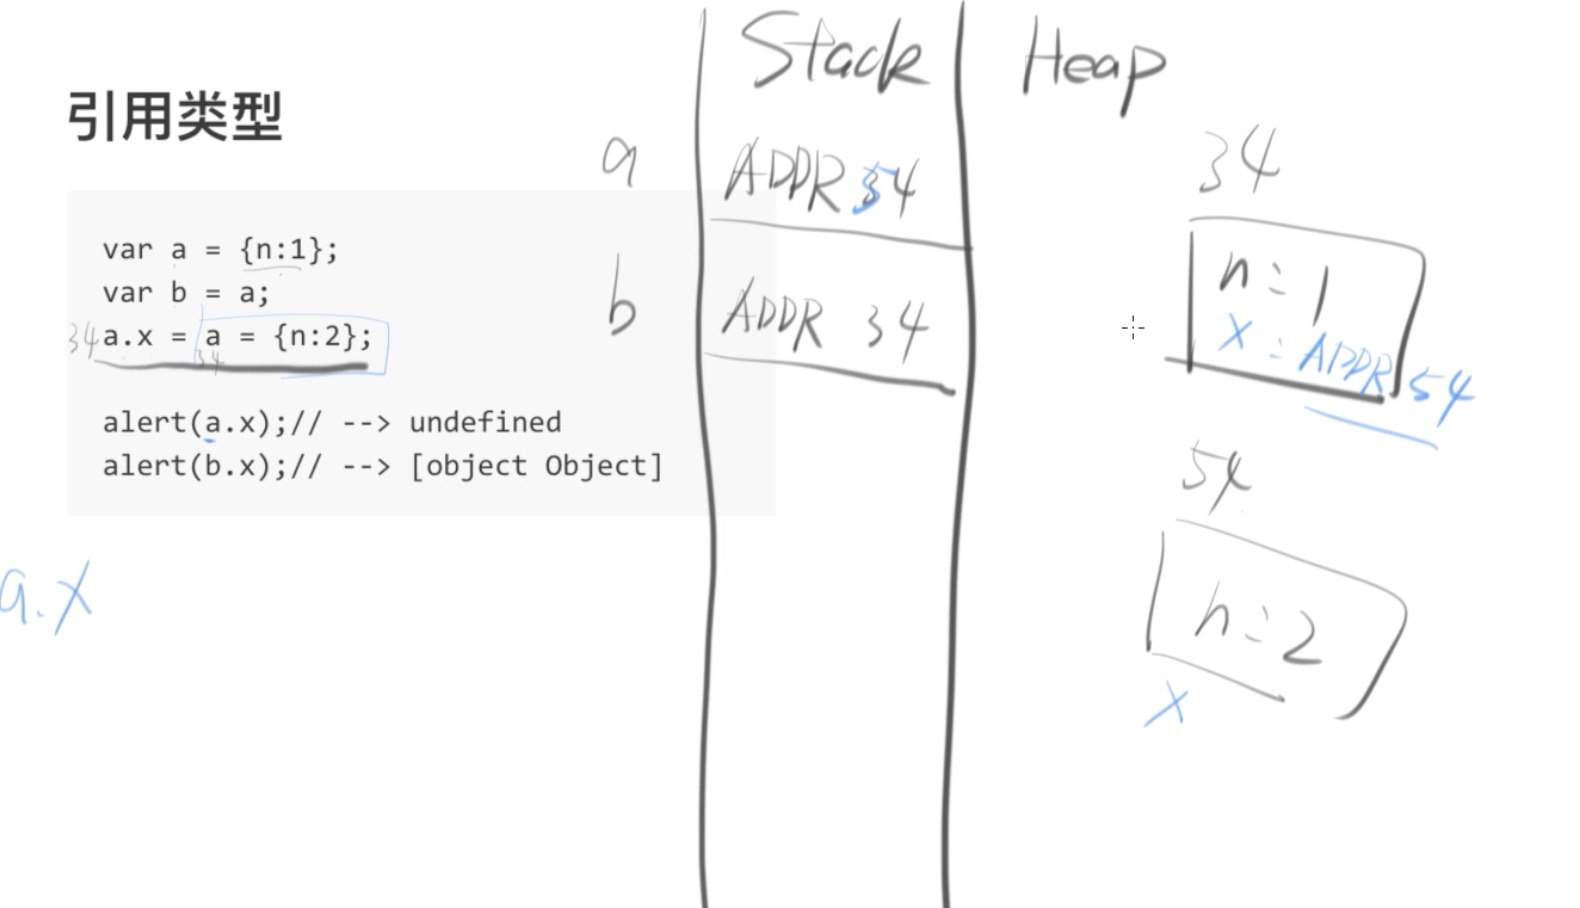 引用类型
var a = {n:1};
var b = a;
34 a.x = a = {n:2};
34
alert(a.x);// --> undefined
alert(b.x);// --> [object Object]
a.x
Stack
Heap
a
ADDR 54
b
ADDR 34
34
n: 1
x: ADDR 54
54
n: 2
x